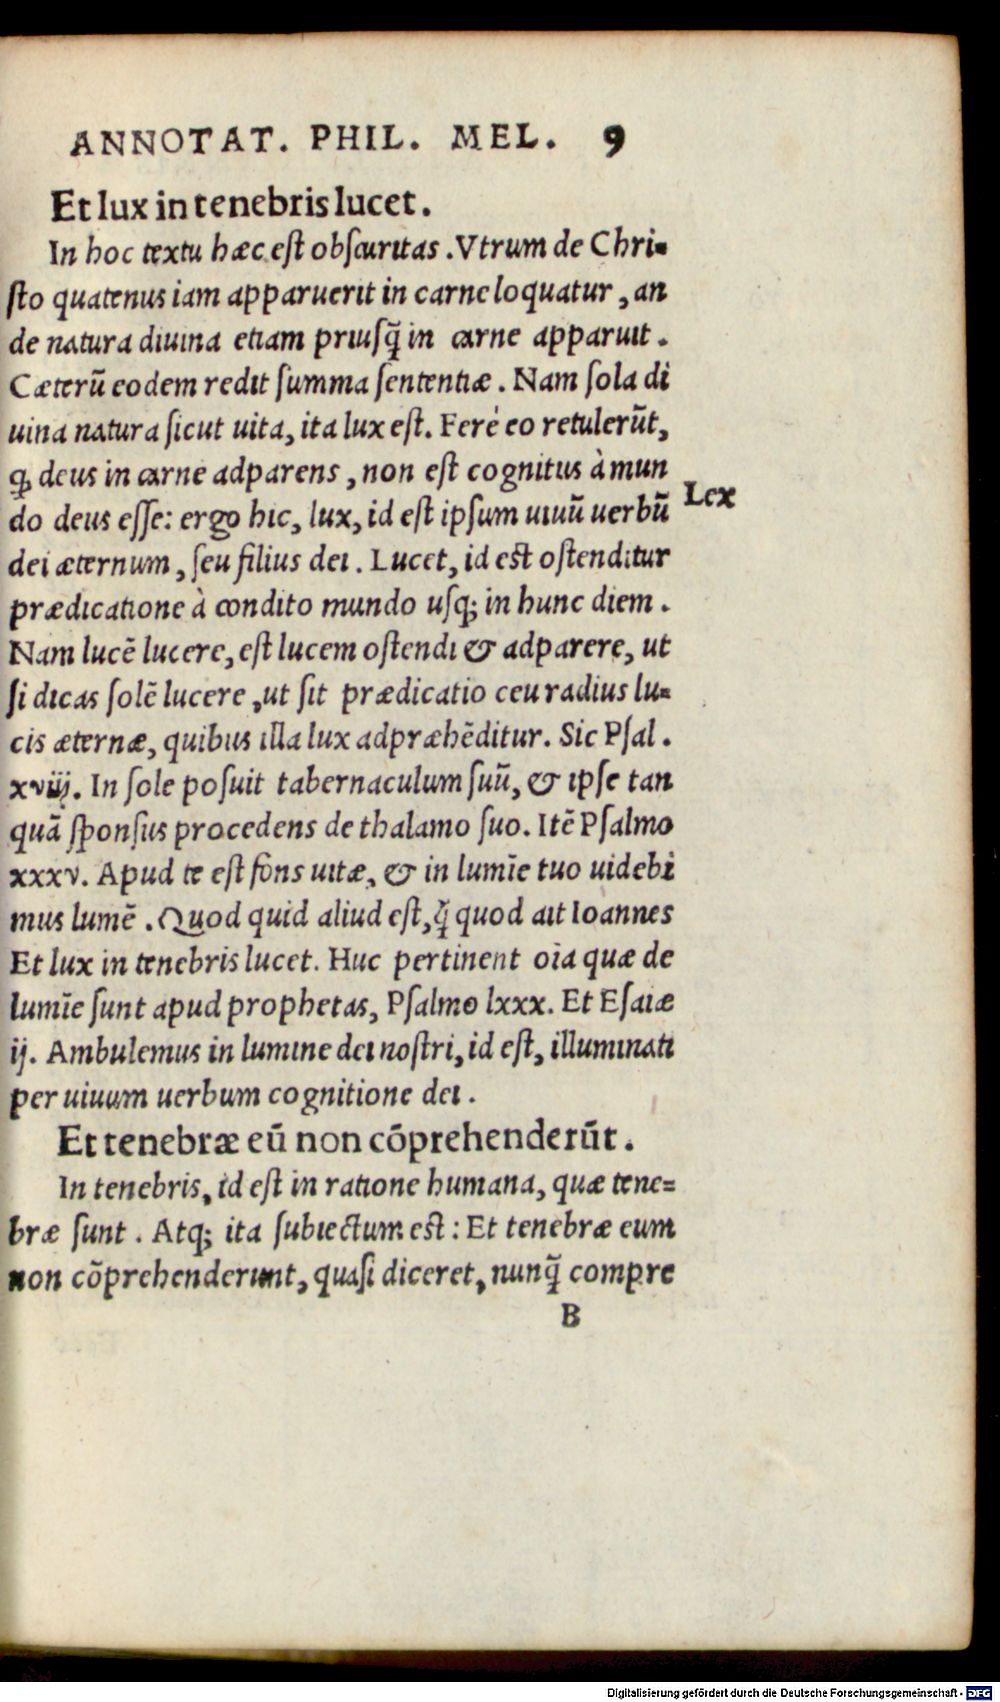 ANNOTAT. PHIL. MEL. 9
Et lux in tenebris lucet.
In hoc textu hæc est obscuritas. Vtrum de Chri-
sto quatenus iam apparuerit in carne loquatur, an
de natura diuina etiam priusq̃ in carne apparuit.
Cæterũ eodem redit summa sententiæ. Nam sola di
uina natura sicut uita, ita lux est. Ferè eo retulerũt,
ꝙ deus in carne adparens, non est cognitus à mun
do deus esse: ergo hic, lux, id est ipsum uiuũ uerbũ
Lex
dei æternum, seu filius dei. Lucet, id est ostenditur
prædicatione à condito mundo usq; in hunc diem.
Nam lucẽ lucere, est lucem ostendi & adparere, ut
si dicas solẽ lucere, ut sit prædicatio ceu radius lu-
cis æternæ, quibus illa lux adpræhẽditur. Sic Psal.
xviij. In sole posuit tabernaculum suũ, & ipse tan
quã sponsus procedens de thalamo suo. Itẽ Psalmo
xxxv. Apud te est fons uitæ, & in lumĩe tuo uidebi
mus lumẽ. Quod quid aliud est, q̃ quod ait Ioannes
Et lux in tenebris lucet. Huc pertinent oĩa quæ de
lumĩe sunt apud prophetas, Psalmo lxxx. Et Esaiæ
ij. Ambulemus in lumine dei nostri, id est, illuminati
per uiuum uerbum cognitione dei.
Et tenebræ eũ non cõprehenderũt.
In tenebris, id est in ratione humana, quæ tene-
bræ sunt. Atq; ita subiectum est: Et tenebræ eum
non cõprehenderunt, quasi diceret, nunq̃ compre
B
Digitalisierung gefördert durch die Deutsche Forschungsgemeinschaft - DFG